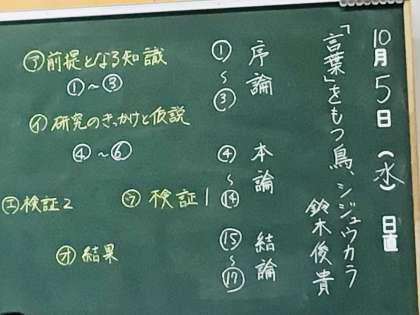 10月5日（水）日直
「言葉」をもつ鳥、シジュウカラ
鈴木俊貴
序論
①～③
本論
④～⑭
結論
⑮～⑰
㋐前提となる知識
①～③
㋑研究のきっかけと仮説
④～⑥
㋒検証1
㋓検証2
㋔結果